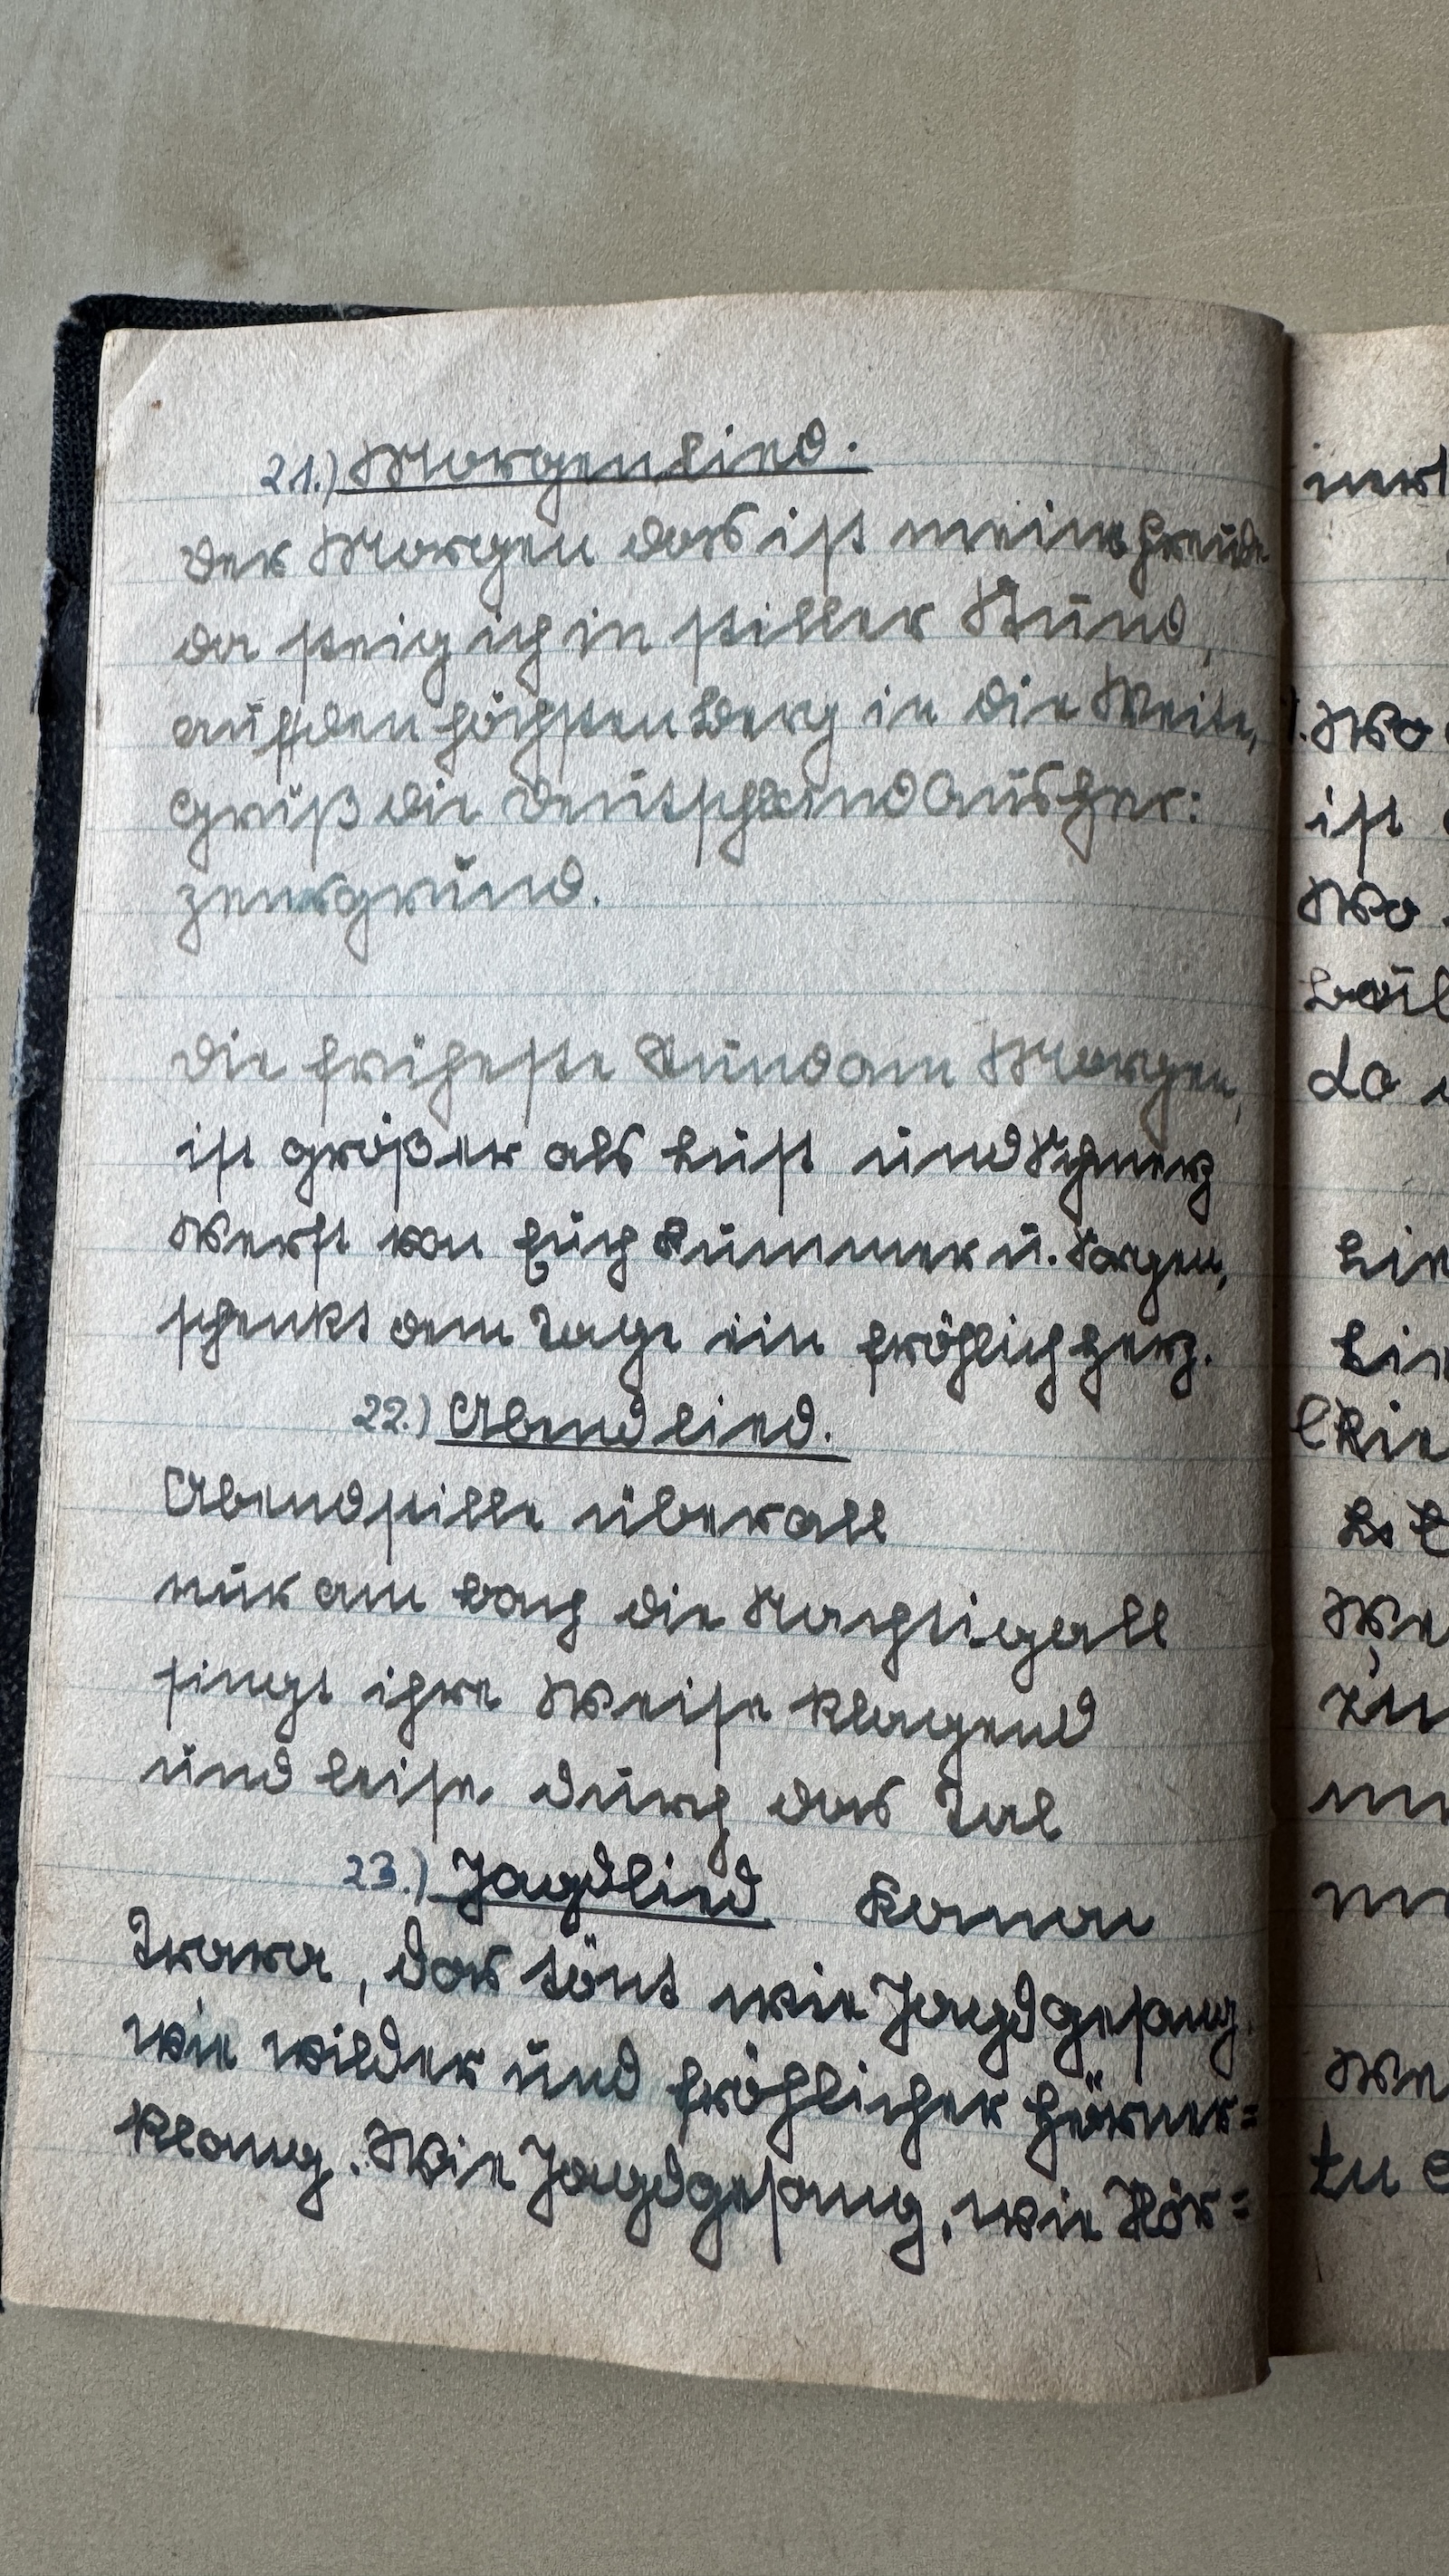 21.) Morgenlied.
Der Morgen das ist meine Freude
da steig ich in stiller Stund,
auf den höchsten Berg in die Weite,
Grüß die Deutschland aus Her:
zensgrund.
Die früheste Stund am Morgen,
ist größer als Lust und Schmerz
Werft von Euch Kummer u. Sorgen,
schenkt dem Tage ein fröhlich Herz.
22.) Abendlied.
Abendstille überall
nur am Bach die Nachtigall
singt ihre Weise klagend
und leise durch das Tal
23.) Jagdlied Kanon
Trara, das tönt wie Jagdgesang.
wie wilder und fröhlicher Hörner=
klang. Wie Jagdgesang, wie Hör=
ist
Wo